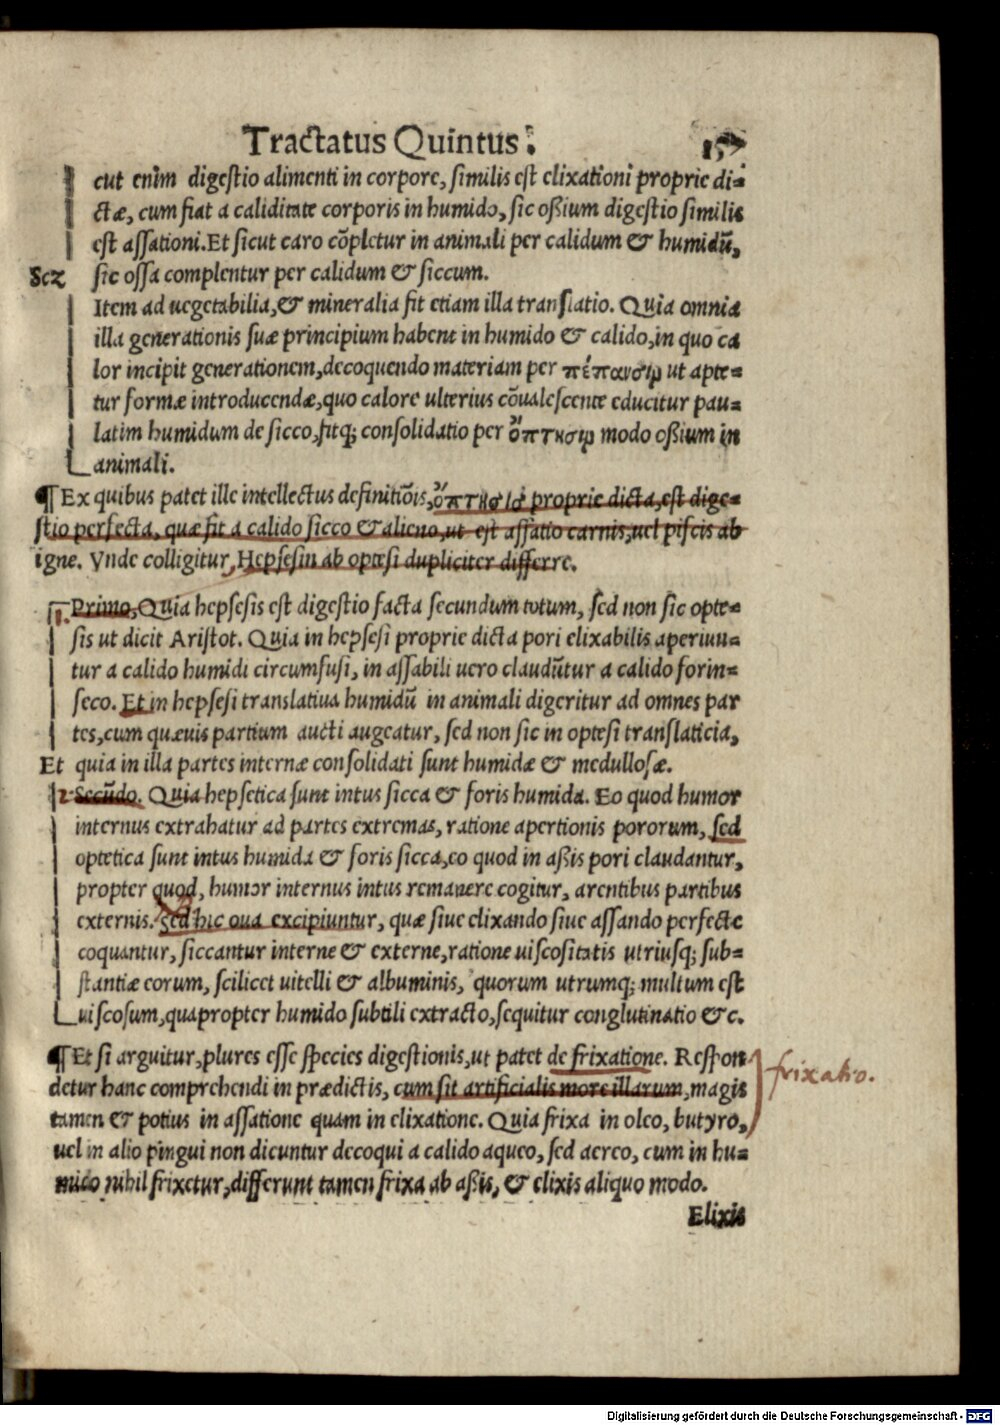 Tractatus Quintus.
cut enim digestio alimenti in corpore, similis est elixationi proprie di-
ctæ, cum fiat a caliditate corporis in humido, sic oßium digestio similis
est assationi. Et sicut caro cõpletur in animali per calidum & humidũ,
Scz sic ossa complentur per calidum & siccum.
Item ad uegetabilia, & mineralia fit etiam illa translatio. Quia omnia
illa generationis suæ principium habent in humido & calido, in quo ca
lor incipit generationem, decoquendo materiam per πέπανσιμ ut apte-
tur formæ introducendæ, quo calore ulterius cõualescente educitur pau-
latim humidum de sicco, fitq; consolidatio per ὄπτησιμ modo oßium in
animali.
¶ Ex quibus patet ille intellectus definitiõis, ὄπτησις proprie dicta, est dige-
stio perfecta, quæ fit a calido sicco & alieno, ut est assatio carnis, uel piscis ab
igne. Vnde colligitur, Hepsesin ab optesi dupliciter differre.
1. Primo, Quia hepsesis est digestio facta secundum totum, sed non sic opte-
sis ut dicit Aristot. Quia in hepsesi proprie dicta pori elixabilis aperiun-
tur a calido humidi circumfusi, in assabili uero claudũtur a calido forin-
seco. Et in hepsesi translatiua humidũ in animali digeritur ad omnes par
tes, cum quæuis partium aucti augeatur, sed non sic in optesi translaticia,
Et quia in illa partes internæ consolidati sunt humidæ & medullosæ.
2 Secũdo. Quia hepsetica sunt intus sicca & foris humida. Eo quod humor
internus extrahatur ad partes extremas, ratione apertionis pororum, sed
optetica sunt intus humida & foris sicca, eo quod in aßis pori claudantur,
propter quod, humor internus intus remanere cogitur, arentibus partibus
externis. Sed hic oua excipiuntur, quæ siue elixando siue assando perfecte
coquantur, siccantur interne & externe, ratione uiscositatis utriusq; sub-
stantiæ eorum, scilicet uitelli & albuminis, quorum utrumq; multum est
uiscosum, quapropter humido subtili extracto, sequitur conglutinatio &c.
¶ Et si arguitur, plures esse species digestionis, ut patet de frixatione. Respon
detur hanc comprehendi in prædictis, cum sit artificialis more illarum, magis
frixatio.
tamen & potius in assatione quam in elixatione. Quia frixa in oleo, butyro,
uel in alio pingui non dicuntur decoqui a calido aqueo, sed aereo, cum in hu-
mido nihil frixetur, differunt tamen frixa ab aßis, & elixis aliquo modo.
Elixis
Digitalisierung gefördert durch die Deutsche Forschungsgemeinschaft - DFG